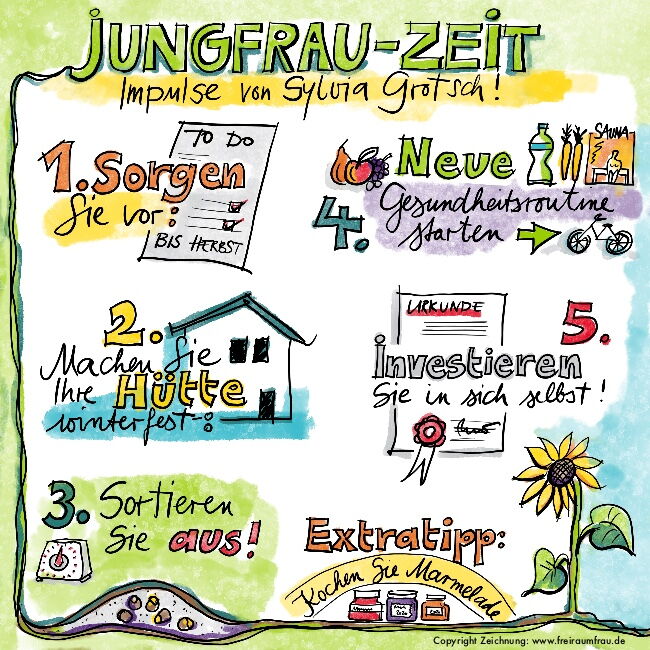 JUNGFRAU-ZEIT
Impulse von Sylvia Grotsch!
TO DO
1. Sorgen
Sie vor:
BIS HERBST
2.
Machen Sie
Ihre Hütte
winterfest-:
3. Sortieren
Sie aus!
Neue
SAUNA
4. Gesundheitsroutine
starten
URKUNDE
5.
investieren
Sie in sich selbst!
Extratipp:
Kochen Sie Marmelade
Copyright Zeichnung: www.freiraumfrau.de